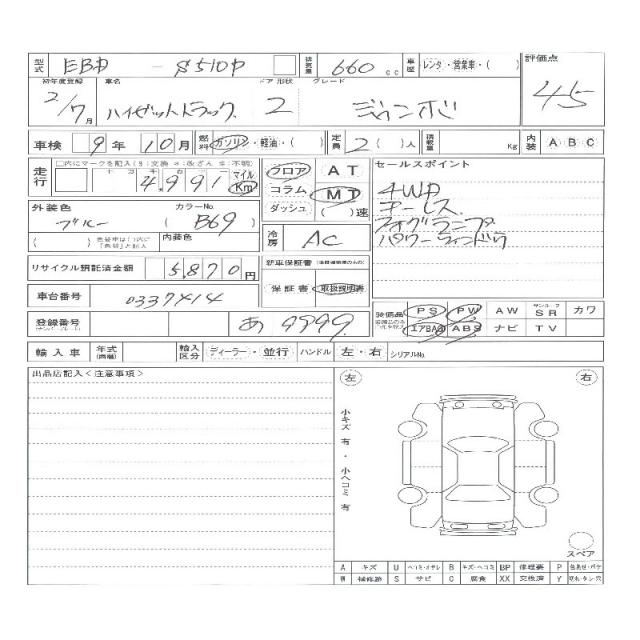 型式 EBD - S510P 排気量 660 cc 車歴 レンタ・営業車・( ) 評価点
初年度登録 車名 ドア 形状 グレード
2/7月 ハイゼットトラック 2 ジャンボ 4.5
車検 9年 10月 燃料 ガソリン・軽油・( ) 定員 2( )人 積載量 Kg 内装 A B C
走行 □内にマークを記入($:交換 *:改ざん #:不明) フロア AT セールスポイント
十万 万 千 百 十 一
4,991 マイル Km コラム MT 4WD
ダッシュ ( )速 キーレス
外装色 カラーNo. フォグランプ
ブルー (B69) 冷房 AC パワーウィンドウ
( ) 色替車は( )内に「色替」と記入 内装色
リサイクル預託済金額 5,870円 新車保証書
保証書 取扱説明書
車台番号 0337414
装備品 PS PW AW サンルーフ SR カワ
登録番号 あ 9999 エアBAG ABS ナビ TV
輸入車 年式 輸入区分 ディーラー・並行 ハンドル 左・右 シリアルNo.
出品店記入<注意事項> 左 右
小キズ有・小ヘコミ有
スペア
A キズ U ヘコミ・オサレ B キズ・ヘコミ BP 修理要 P 色あせ・ボケ
W 補修跡 S サビ C 腐食 XX 交換済 Y 切れ・タン・穴